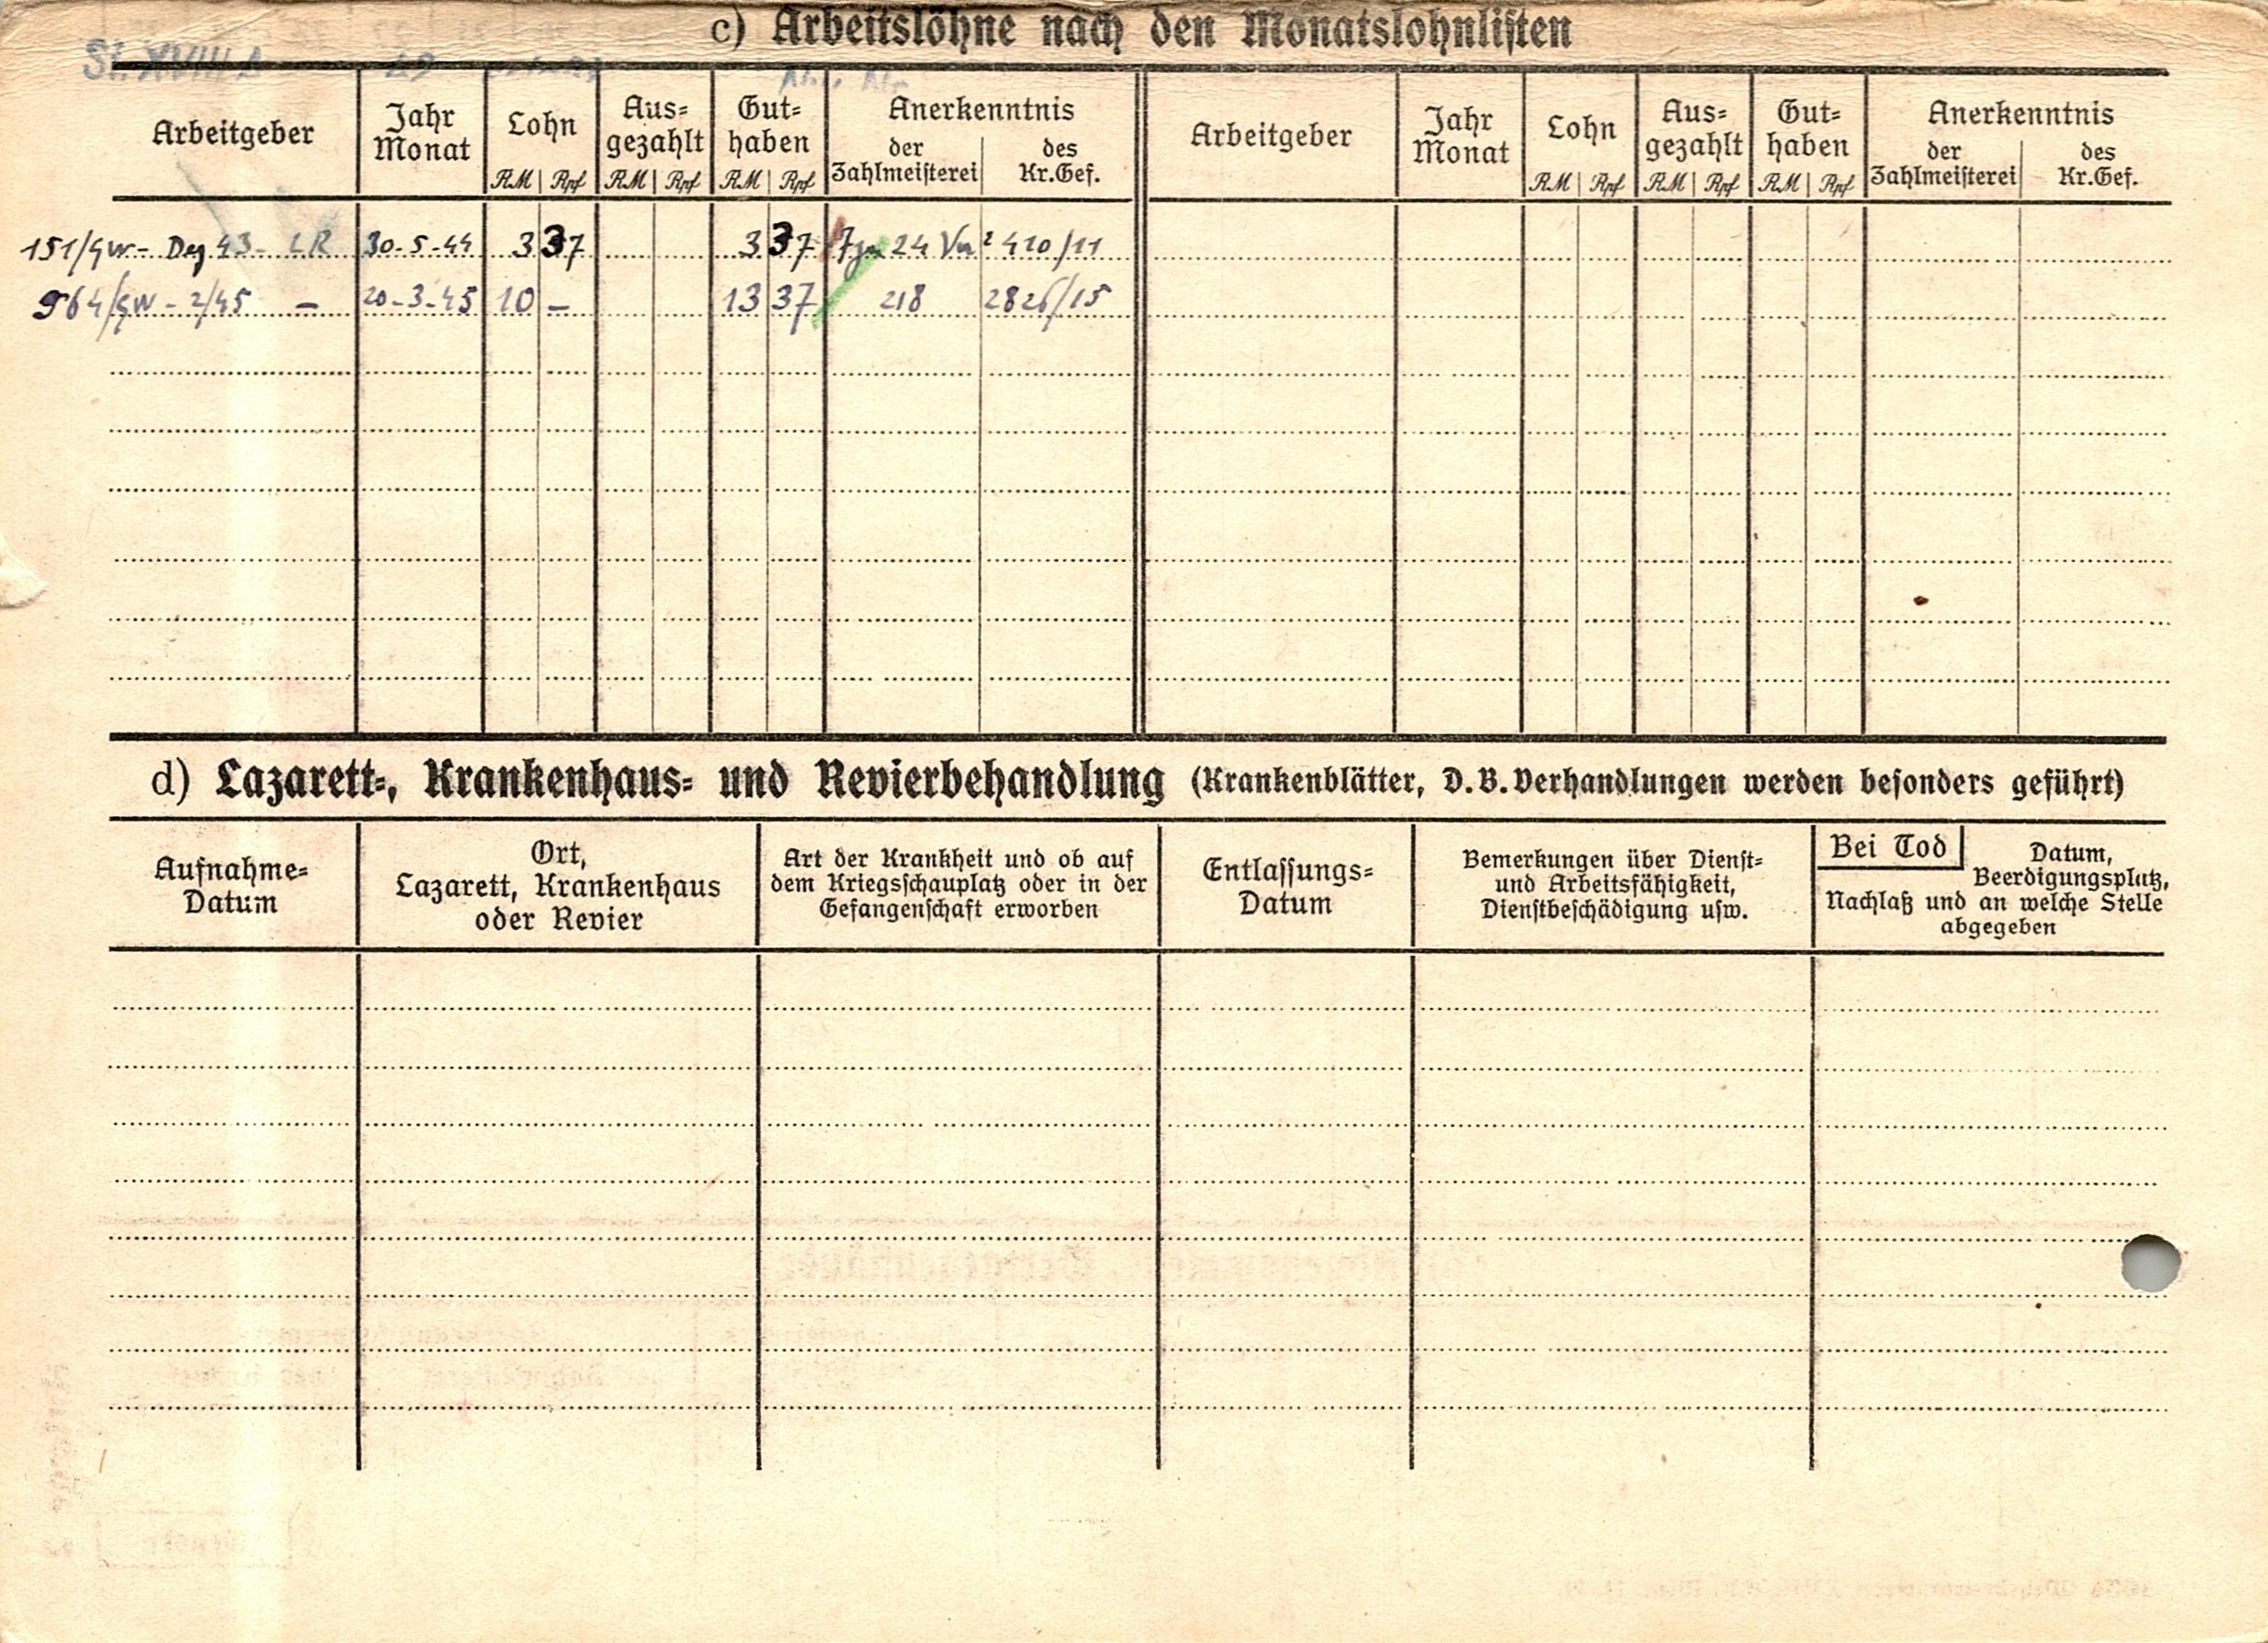 c) Arbeitslöhne nach den Monatslohnlisten
St. XVIII A
Arbeitgeber Jahr Monat Lohn Aus= gezahlt Gut= haben Anerkenntnis der Zahlmeisterei des Kr.Gef. Arbeitgeber Jahr Monat Lohn Aus= gezahlt Gut= haben Anerkenntnis der Zahlmeisterei des Kr.Gef.
RM Rpf RM Rpf RM Rpf RM Rpf RM Rpf RM Rpf
151/GW - Dez 43 - LR 30-5-44 3 37 3 37 24 410/11
964/GW - 2/45 - 20-3-45 10 - 13 37 218 2826/15
d) Lazarett=, Krankenhaus= und Revierbehandlung (Krankenblätter, D.B.Verhandlungen werden besonders geführt)
Aufnahme= Datum
Ort, Lazarett, Krankenhaus oder Revier
Art der Krankheit und ob auf dem Kriegsschauplatz oder in der Gefangenschaft erworben
Entlassungs= Datum
Bemerkungen über Dienst= und Arbeitsfähigkeit, Dienstbeschädigung usw.
Bei Tod Datum, Beerdigungsplatz, Nachlaß und an welche Stelle abgegeben